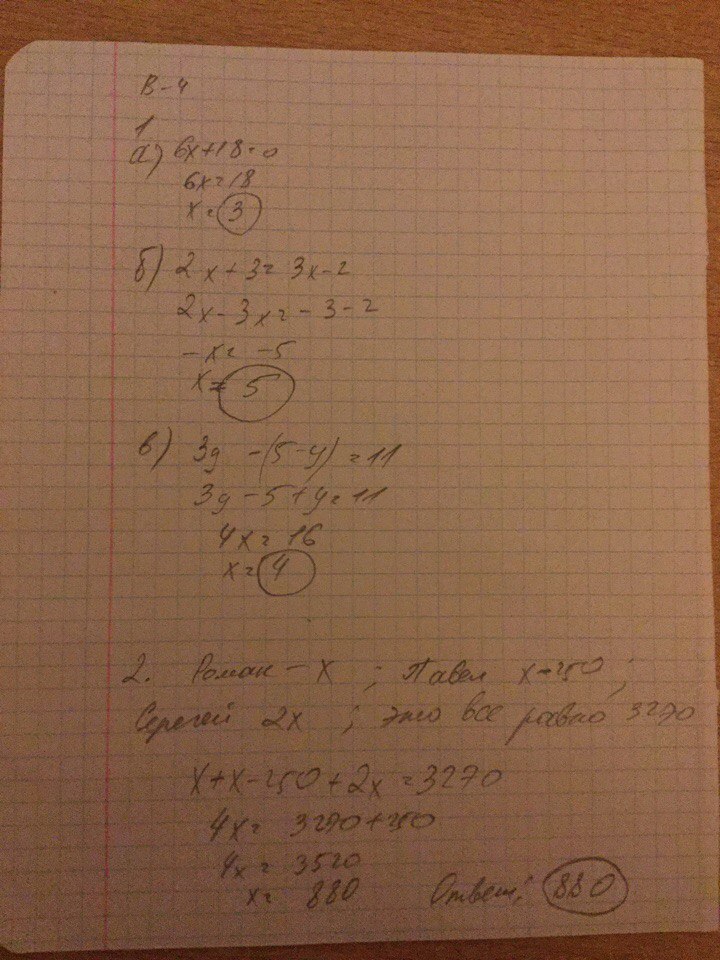 В-4
1
а) 6x+18=0
6x=18
x=3
б) 2x+3=3x-2
2x-3x=-3-2
-x=-5
x=5
в) 3y-(5-y)=11
3y-5+y=11
4x=16
x=4
2. Роман - x; Павел x-250;
Сергей 2x; это все равно 3270
x+x-250+2x=3270
4x=3270+250
4x=3520
x=880 Ответ: 880